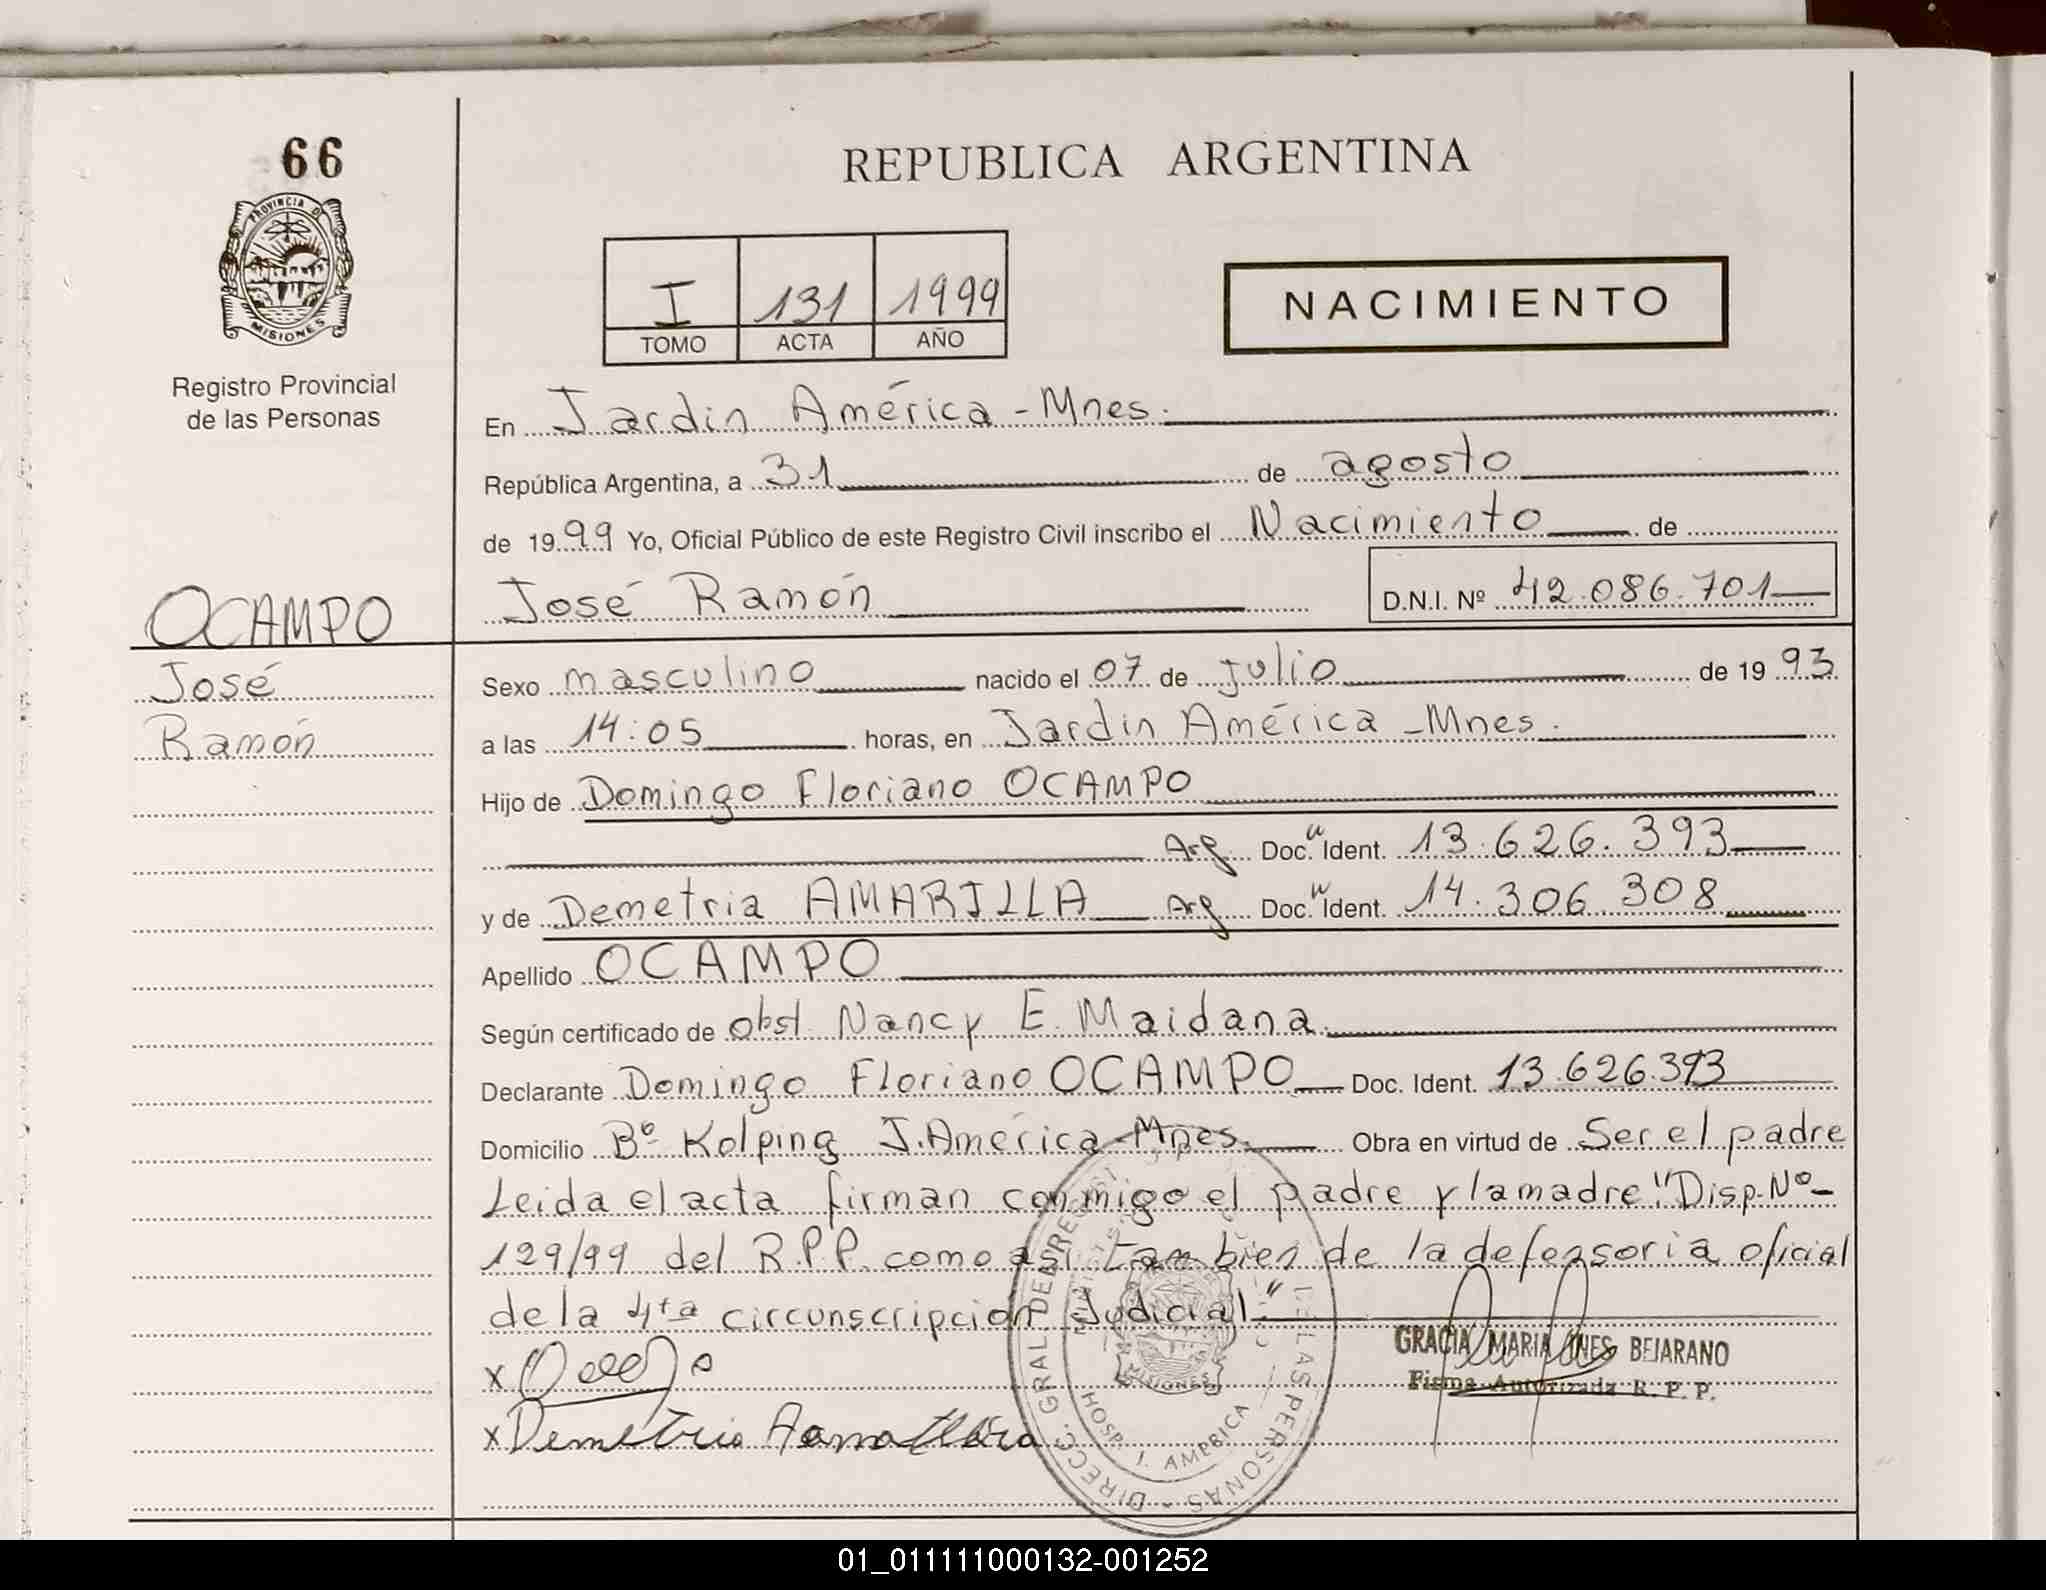 66
REPUBLICA ARGENTINA
PROVINCIA D
MISIONES
I 131 1999
TOMO ACTA AÑO
NACIMIENTO
Registro Provincial
de las Personas
En Jardin América - Mnes.
República Argentina, a 31 de agosto
de 1999 Yo, Oficial Público de este Registro Civil inscribo el Nacimiento de
José Ramón D.N.I. Nº 42.086.701
OCAMPO
José
Ramón
Sexo masculino nacido el 07 de julio de 1993
a las 14:05 horas, en Jardin América - Mnes.
Hijo de Domingo Floriano OCAMPO
Arg Doc. Ident. 13.626.393
y de Demetria AMARILLA Arg Doc. Ident. 14.306.308
Apellido OCAMPO
Según certificado de obst. Nancy E. Maidana
Declarante Domingo Floriano OCAMPO Doc. Ident. 13.626.393
Domicilio Bº Kolping J. América - Mnes. Obra en virtud de Ser el padre
Leida el acta firman conmigo el padre y la madre "Disp. Nº
129/99 del R.P.P. como asi tambien de la defensoria oficial
de la 4ta circunscripción Judicial."
GRACIA MARIA INES BEJARANO
Firma Autorizada R. P. P.
x
x Demetria
DIREC. GRAL DEL REGIST. LAS PERSONAS
HOSP. J. AMERICA
MISIONES
01_011111000132-001252